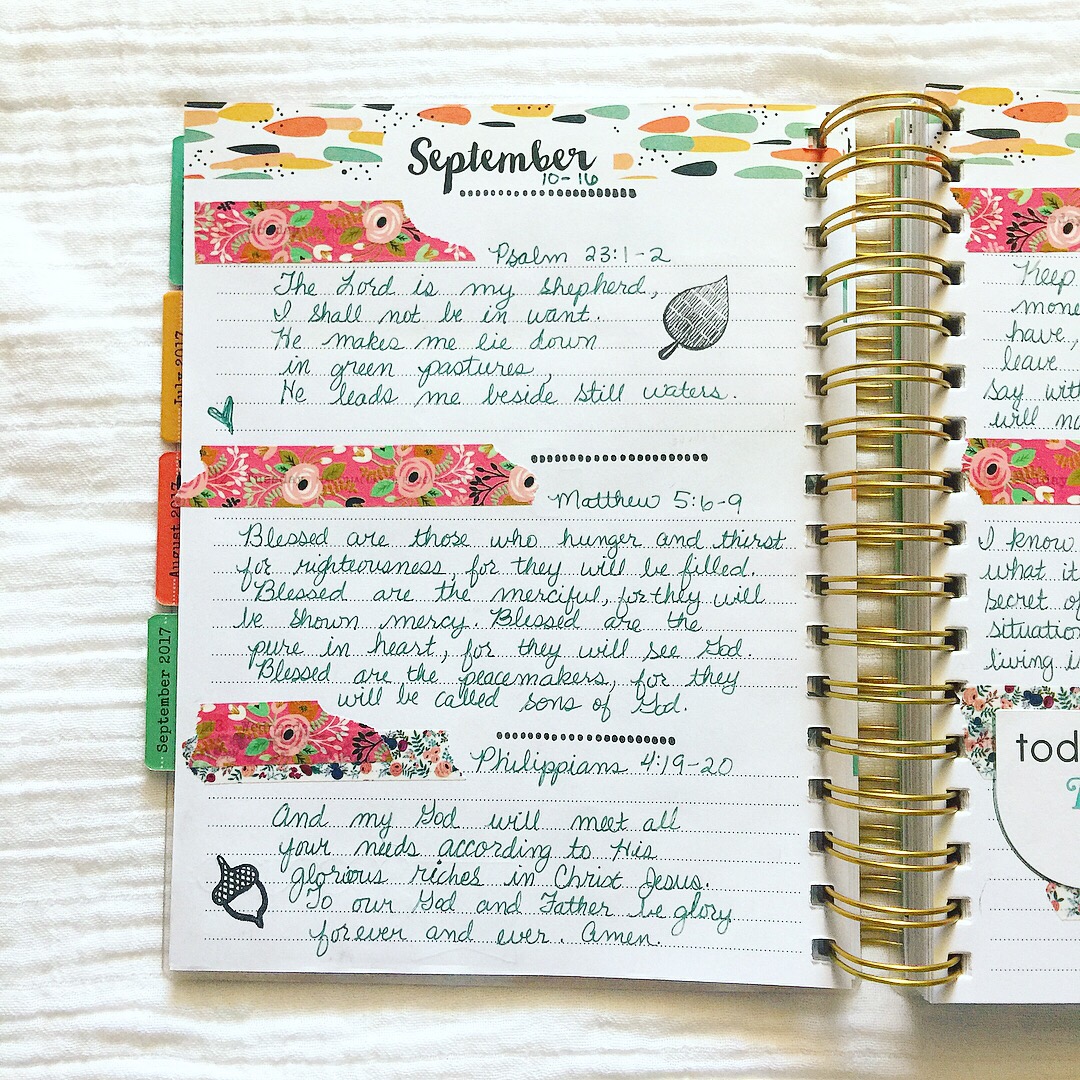 September
10-16
Psalm 23:1-2
The Lord is my shepherd,
I shall not be in want.
He makes me lie down
in green pastures,
He leads me beside still waters.
Matthew 5:6-9
Blessed are those who hunger and thirst
for righteousness, for they will be filled.
Blessed are the merciful, for they will
be shown mercy. Blessed are the
pure in heart, for they will see God.
Blessed are the peacemakers, for they
will be called sons of God.
Philippians 4:19-20
And my God will meet all
your needs according to His
glorious riches in Christ Jesus.
To our God and Father be glory
for ever and ever. Amen.
July 2017
August 2017
September 2017
Keep
have,
leave
say
will
I know
what it
secret of
situation
living
tod